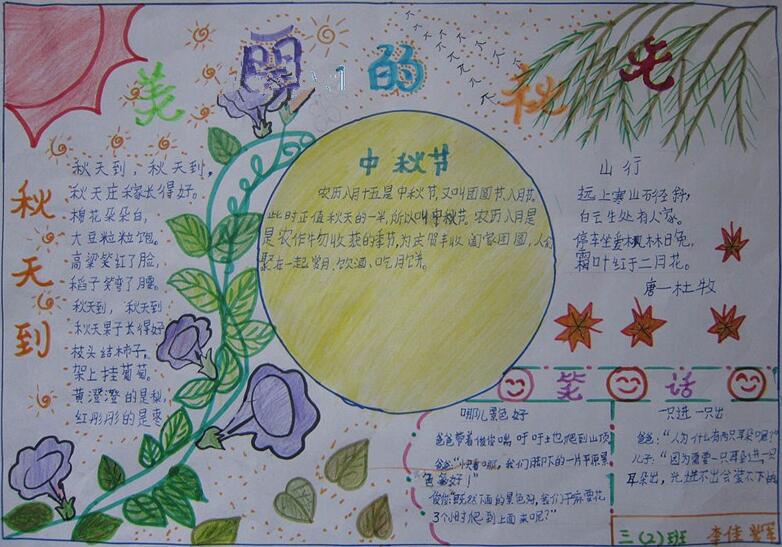 美丽的秋天
秋天到
秋天到，秋天到，
秋天庄稼长得好。
棉花朵朵白，
大豆粒粒饱。
高粱笑红了脸，
稻子笑弯了腰。
秋天到，秋天到
秋天果子长得好
枝头结柿子。
架上挂葡萄。
黄澄澄的是梨，
红彤彤的是枣
中秋节
农历八月十五是中秋节，又叫团圆节、八月节。
此时正值秋天的一半，所以叫中秋节。农历八月是
是农作物收获的季节，为庆贺丰收阖家团圆，人们
聚在一起赏月、饮酒、吃月饼。
山行
远上寒山石径斜，
白云生处有人家。
停车坐爱枫林晚，
霜叶红于二月花。
唐一杜牧
笑话
哪儿景色好
爸爸带着俊俊喘吁吁地爬到山顶
爸爸："快看哪，我们脚下的一片平原景
色多好！"
俊俊："既然下面的景色好，我们干嘛要花
3个小时爬到上面来呢？"
一只进一只出
爸爸："人为什么有两只耳朵呢？"
儿子："因为需要一只耳朵进一只
耳朵出，光进不出会装不下的
三（2）班 李佳